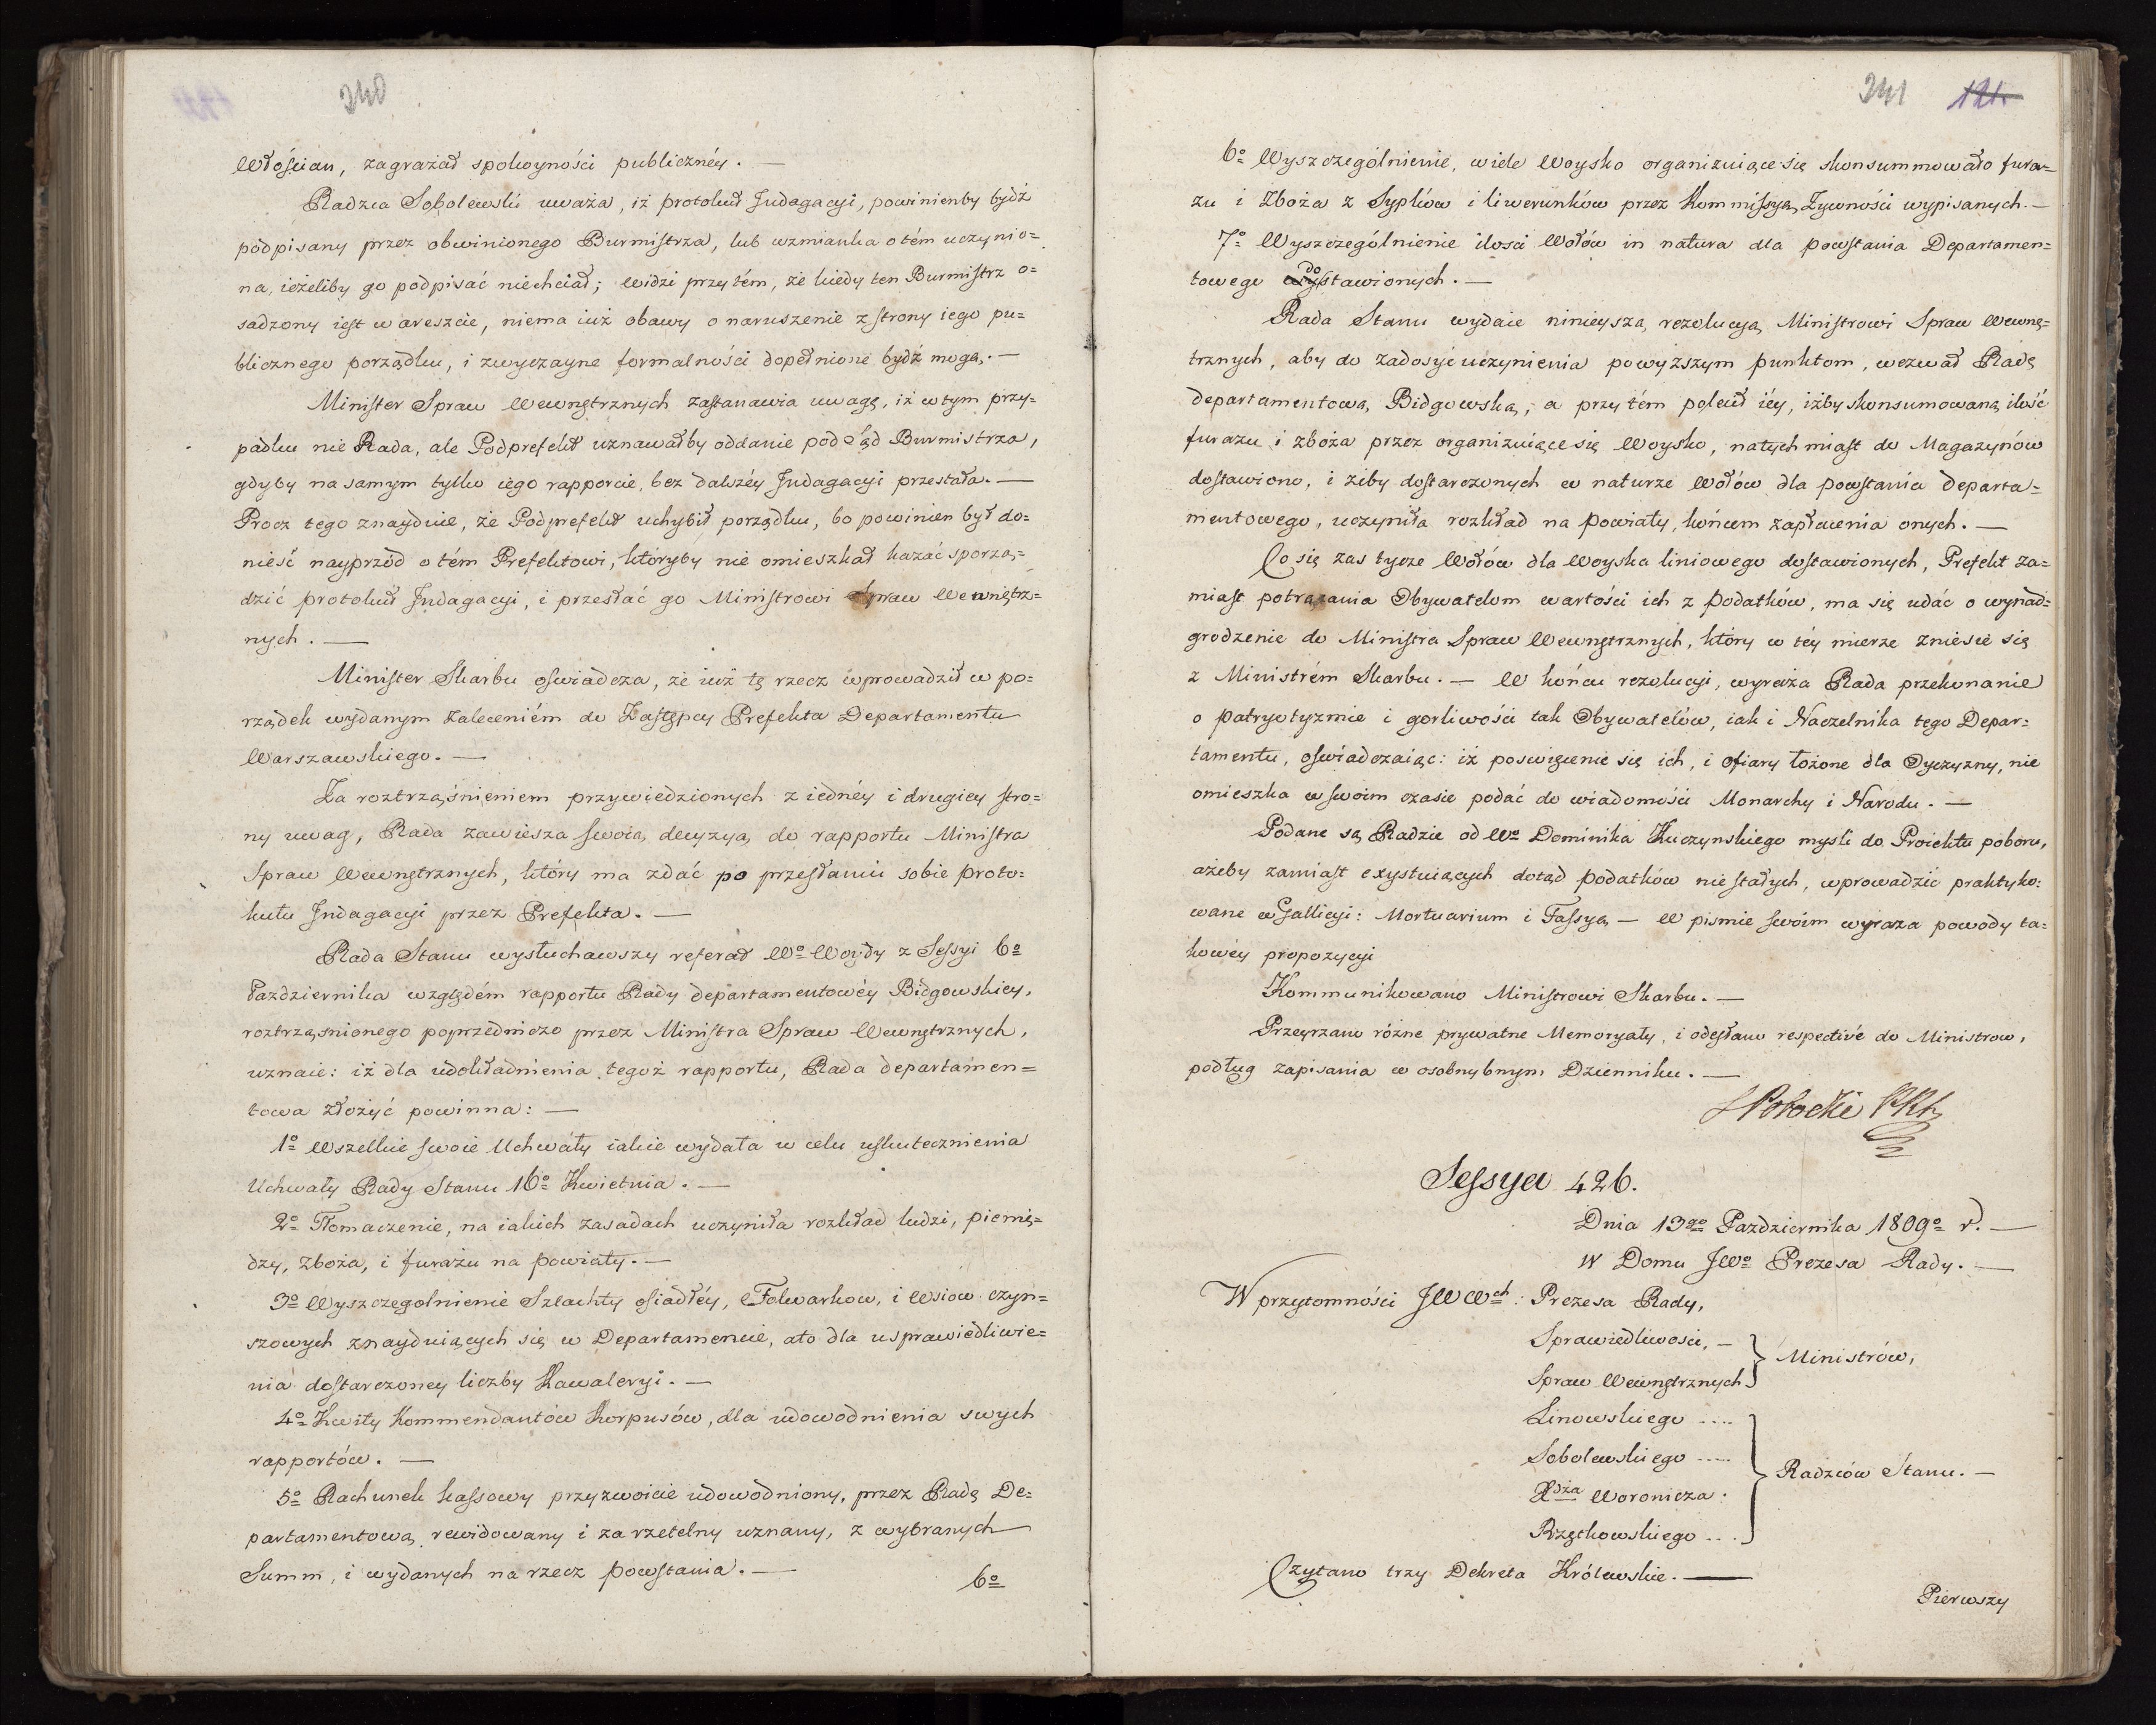 240
Włościan, zagrażał spokoyności publicznéy. —
Radzca Sobolewski uważa, iż protokuł Indagacyi, powinienby bydź
podpisany przez obwinionego Burmistrza, lub wzmianka o tém uczynio=
na, ieżeliby go podpisać niechciał; widzi przy tém, że kiedy ten Burmistrz o=
sadzony iest w areszcie, niema iuż obawy o naruszenie z strony iego pu=
blicznego porządku, i zwyczayne formalności dopełnione bydź mogą. —
Minister Spraw Wewnętrznych zastanawia uwagę, iż w tym przy=
padku nie Rada, ale Podprefekt uznawałby oddanie pod Sąd Burmistrza,
gdyby na samym tylko iego rapporcie, bez dalszéy Indagacyi przestała. —
Procz tego znayduie, że Podprefekt uchybił porządku, bo powinien był do=
nieść nayprzód o tém Prefektowi, któryby nie omieszkał kazać sporzą=
dzić protokuł Indagacyi, i przesłać go Ministrowi Spraw Wewnętrz=
nych. —
Minister Skarbu oświadcza, że iuż tę rzecz wprowadził w po=
rządek wydanym zaleceniém do Zastępcy Prefekta Departamentu
Warszawskiego. —
Za roztrząśnieniem przywiedzionych z iednéy i drugiey stro=
ny uwag, Rada zawiesza swoią decyzyą do rapportu Ministra
Spraw Wewnętrznych, który ma zdać po przesłaniu sobie proto=
kułu Indagacyi przez Prefekta. —
Rada Stanu wysłuchawszy referat Wo Woydy z Sessyi 6o
Pazdziernika względém rapportu Rady departamentowéy Bidgowskiey,
roztrząsnionego poprzedniczo przez Ministra Spraw Wewnętrznych,
uznaie: iż dla udokładnienia tegoż rapportu, Rada departamen=
towa złożyć powinna: —
1o Wszelkie swoie Uchwały iakie wydała w celu uskutecznienia
Uchwały Rady Stanu 16o Kwietnia. —
2o Tłomaczenie, na iakich zasadach uczyniła rozkład ludzi, pienię=
dzy, zboża, i furażu na powiaty. —
3o Wyszczegolnienie Szlachty osiadłéy, Folwarkow, i Wsiow czyn=
szowych znayduiących się w Departamencie, a to dla usprawiedliwie=
nia dostarczoney liczby Kawaleryi. —
4o Kwity Kommendantów Korpusów, dla udowodnienia swych
rapportów. —
5o Rachunek kassowy przyzwoicie udowodniony, przez Radę De=
partamentową rewidowany i za rzetelny uznany, z wybranych
Summ, i wydanych na rzecz powstania. —
6o
241 121.
6o Wyszczególnienie, wiele Woysko organizuiące się skonsummowało fura=
żu i Zboża z Sypków i liwerunków przez Kommissyą Żywności wypisanych. —
7o Wyszczególnienie ilosci Wołów in natura dla powstania Departamen=
towego dostawionych. —
Rada Stanu wydaie ninieyszą rezolucyą Ministrowi Spraw Wewnę=
trznych, aby do zadosyć uczynienia powyższym punktom, wezwał Radę
departamentową Bidgowską; a przy tém polecił iéy, iżby skonsumowaną ilość
furażu i zboża przez organizuiące się Woysko, natychmiast do Magazynów
dostawiono, i żeby dostarczonych w naturze Wołów dla powstania departa=
mentowego, uczyniła rozkład na powiaty, końcem zapłacenia onych. —
Co się zas tycze Wołów dla Woyska liniowego dostawionych, Prefekt za=
miast potrącania Obywatelom wartości ich z podatków, ma się udać o wynad=
grodzenie do Ministra Spraw Wewnętrznych, który w téy mierze zniesie się
z Ministrém Skarbu. — W końcu rezolucyi, wyraża Rada przekonanie
o patryotyzmie i gorliwości tak Obywatelów, iak i Naczelnika tego Depar=
tamentu, oświadczaiąc: iż poswięcenie się ich, i ofiary łożone dla Oyczyzny, nie
omieszka w swoim czasie podać do wiadomości Monarchy i Narodu. —
Podane są Radzie od Wo Dominika Kuczynskiego mysli do Proiektu poboru,
ażeby zamiast exystuiących dotąd podatków niestałych, wprowadzić praktyko=
wane w Gallicyi: Mortuarium i Fassyą — W pismie swoim wyraża powody ta=
kowéy propozycyi
Kommunikowano Ministrowi Skarbu. —
Przeyrzano różne prywatne Memoryały, i odesłano respectivé do Ministrow,
podług zapisania w osobnybnym Dzienniku. —
SPotocki
Sessya 426.
Dnia 13go Pazdziernika 1809o r. —
W Domu JWo Prezesa Rady. —
W przytomności JWWch: Prezesa Rady,
Sprawiedliwosci, —
Spraw Wewnętrznych } Ministrów,
Linowskiego ....
Sobolewskiego .....
Xdza Woronicza. } Radzców Stanu. —
Rzętkowskiego ...
Czytano trzy Dekreta Królewskie. —
Pierwszy